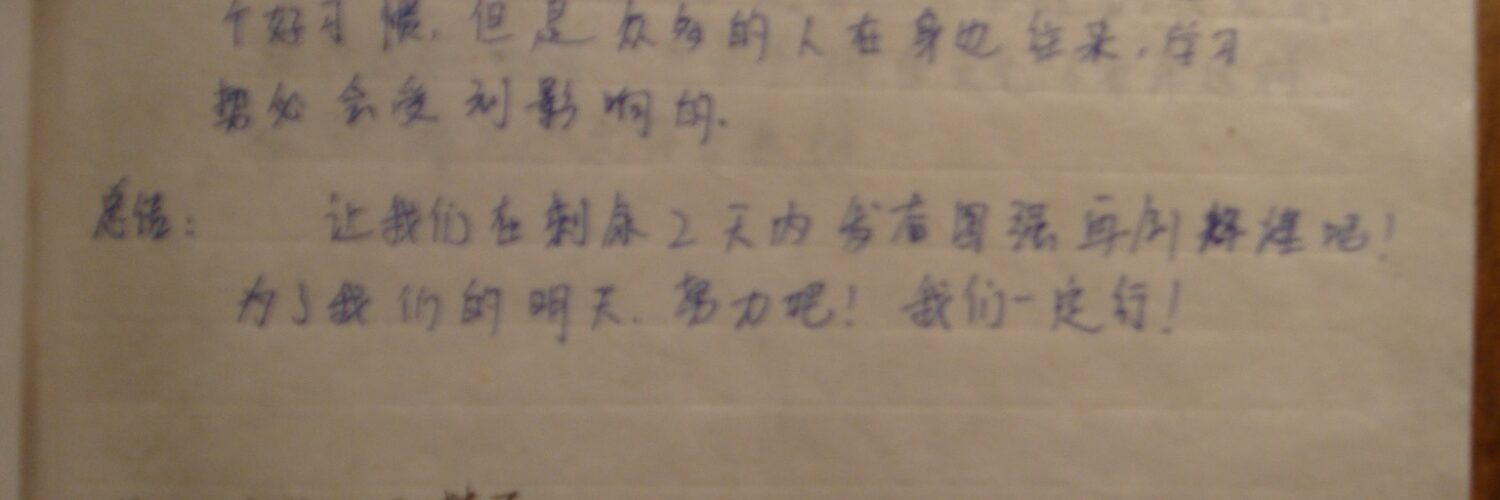 个好习惯,但是众多的人在身边往来,学习
势必会受到影响的.
总结: 让我们在剩余2天内发奋图强再创辉煌吧!
为了我们的明天.努力吧!我们一定行!